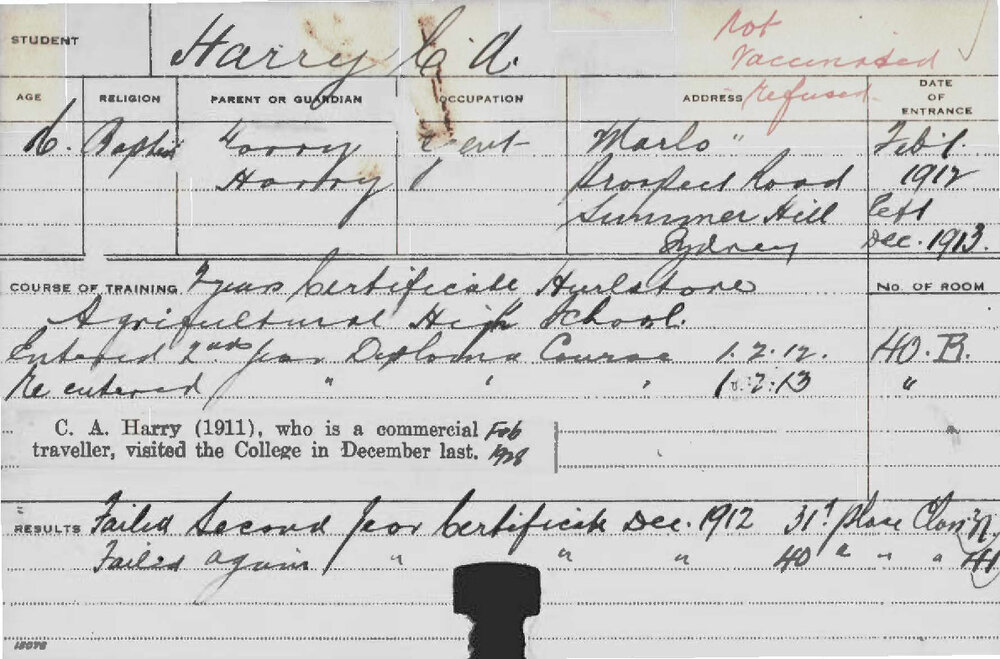 STUDENT Harry C. A.
Not
Vaccinated
Refused
AGE RELIGION PARENT OR GUARDIAN OCCUPATION ADDRESS DATE OF ENTRANCE
Baptist Harry Agent "Marlo" Feb 1.
Harry Prospect Road 1912
Summer Hill left
Sydney Dec. 1913.
COURSE OF TRAINING 2 years Certificate Hurlstone No. OF ROOM
Agricultural High School.
Entered 2nd year Diploma Course 1.2.12. 40.B.
Re entered " " " 1.2.13 "
C. A. Harry (1911), who is a commercial Feb
traveller, visited the College in December last. 1928
RESULTS Failed Second Year Certificate Dec. 1912 31st place Class
Failed again " " " 40 " " " 41
15078